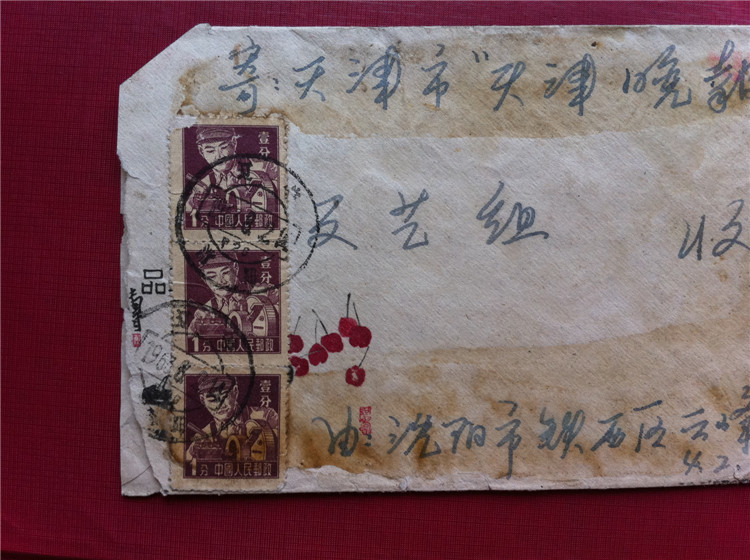 寄：天津市"天津晚報
文艺組 收
由：沈阳市铁西区云峰
4.2.
壹分
1分 中國人民郵政
壹分
1分 中國人民郵政
壹分
1分 中國人民郵政
品
1963.8